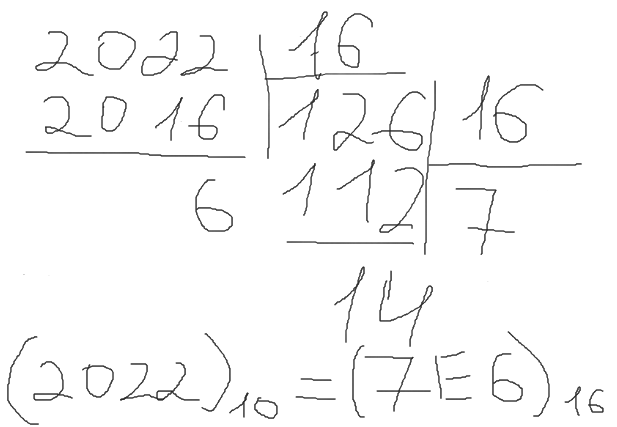 2022 16
2016 126 16
6 112 7
14
(2022)₁₀ = (7E6)₁₆